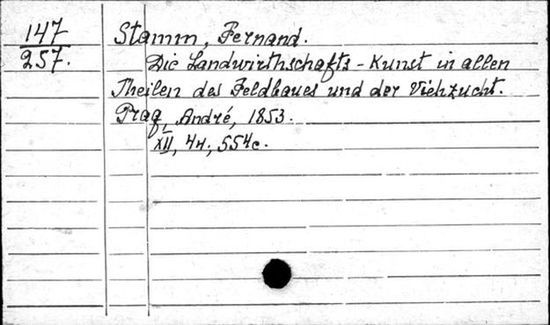 147
257.
Stamm, Fernand.
Die Landwirthschafts-Kunst in allen
Theilen des Feldbaues und der Viehzucht.
Prag, André, 1853.
XII, 4н, 554с.